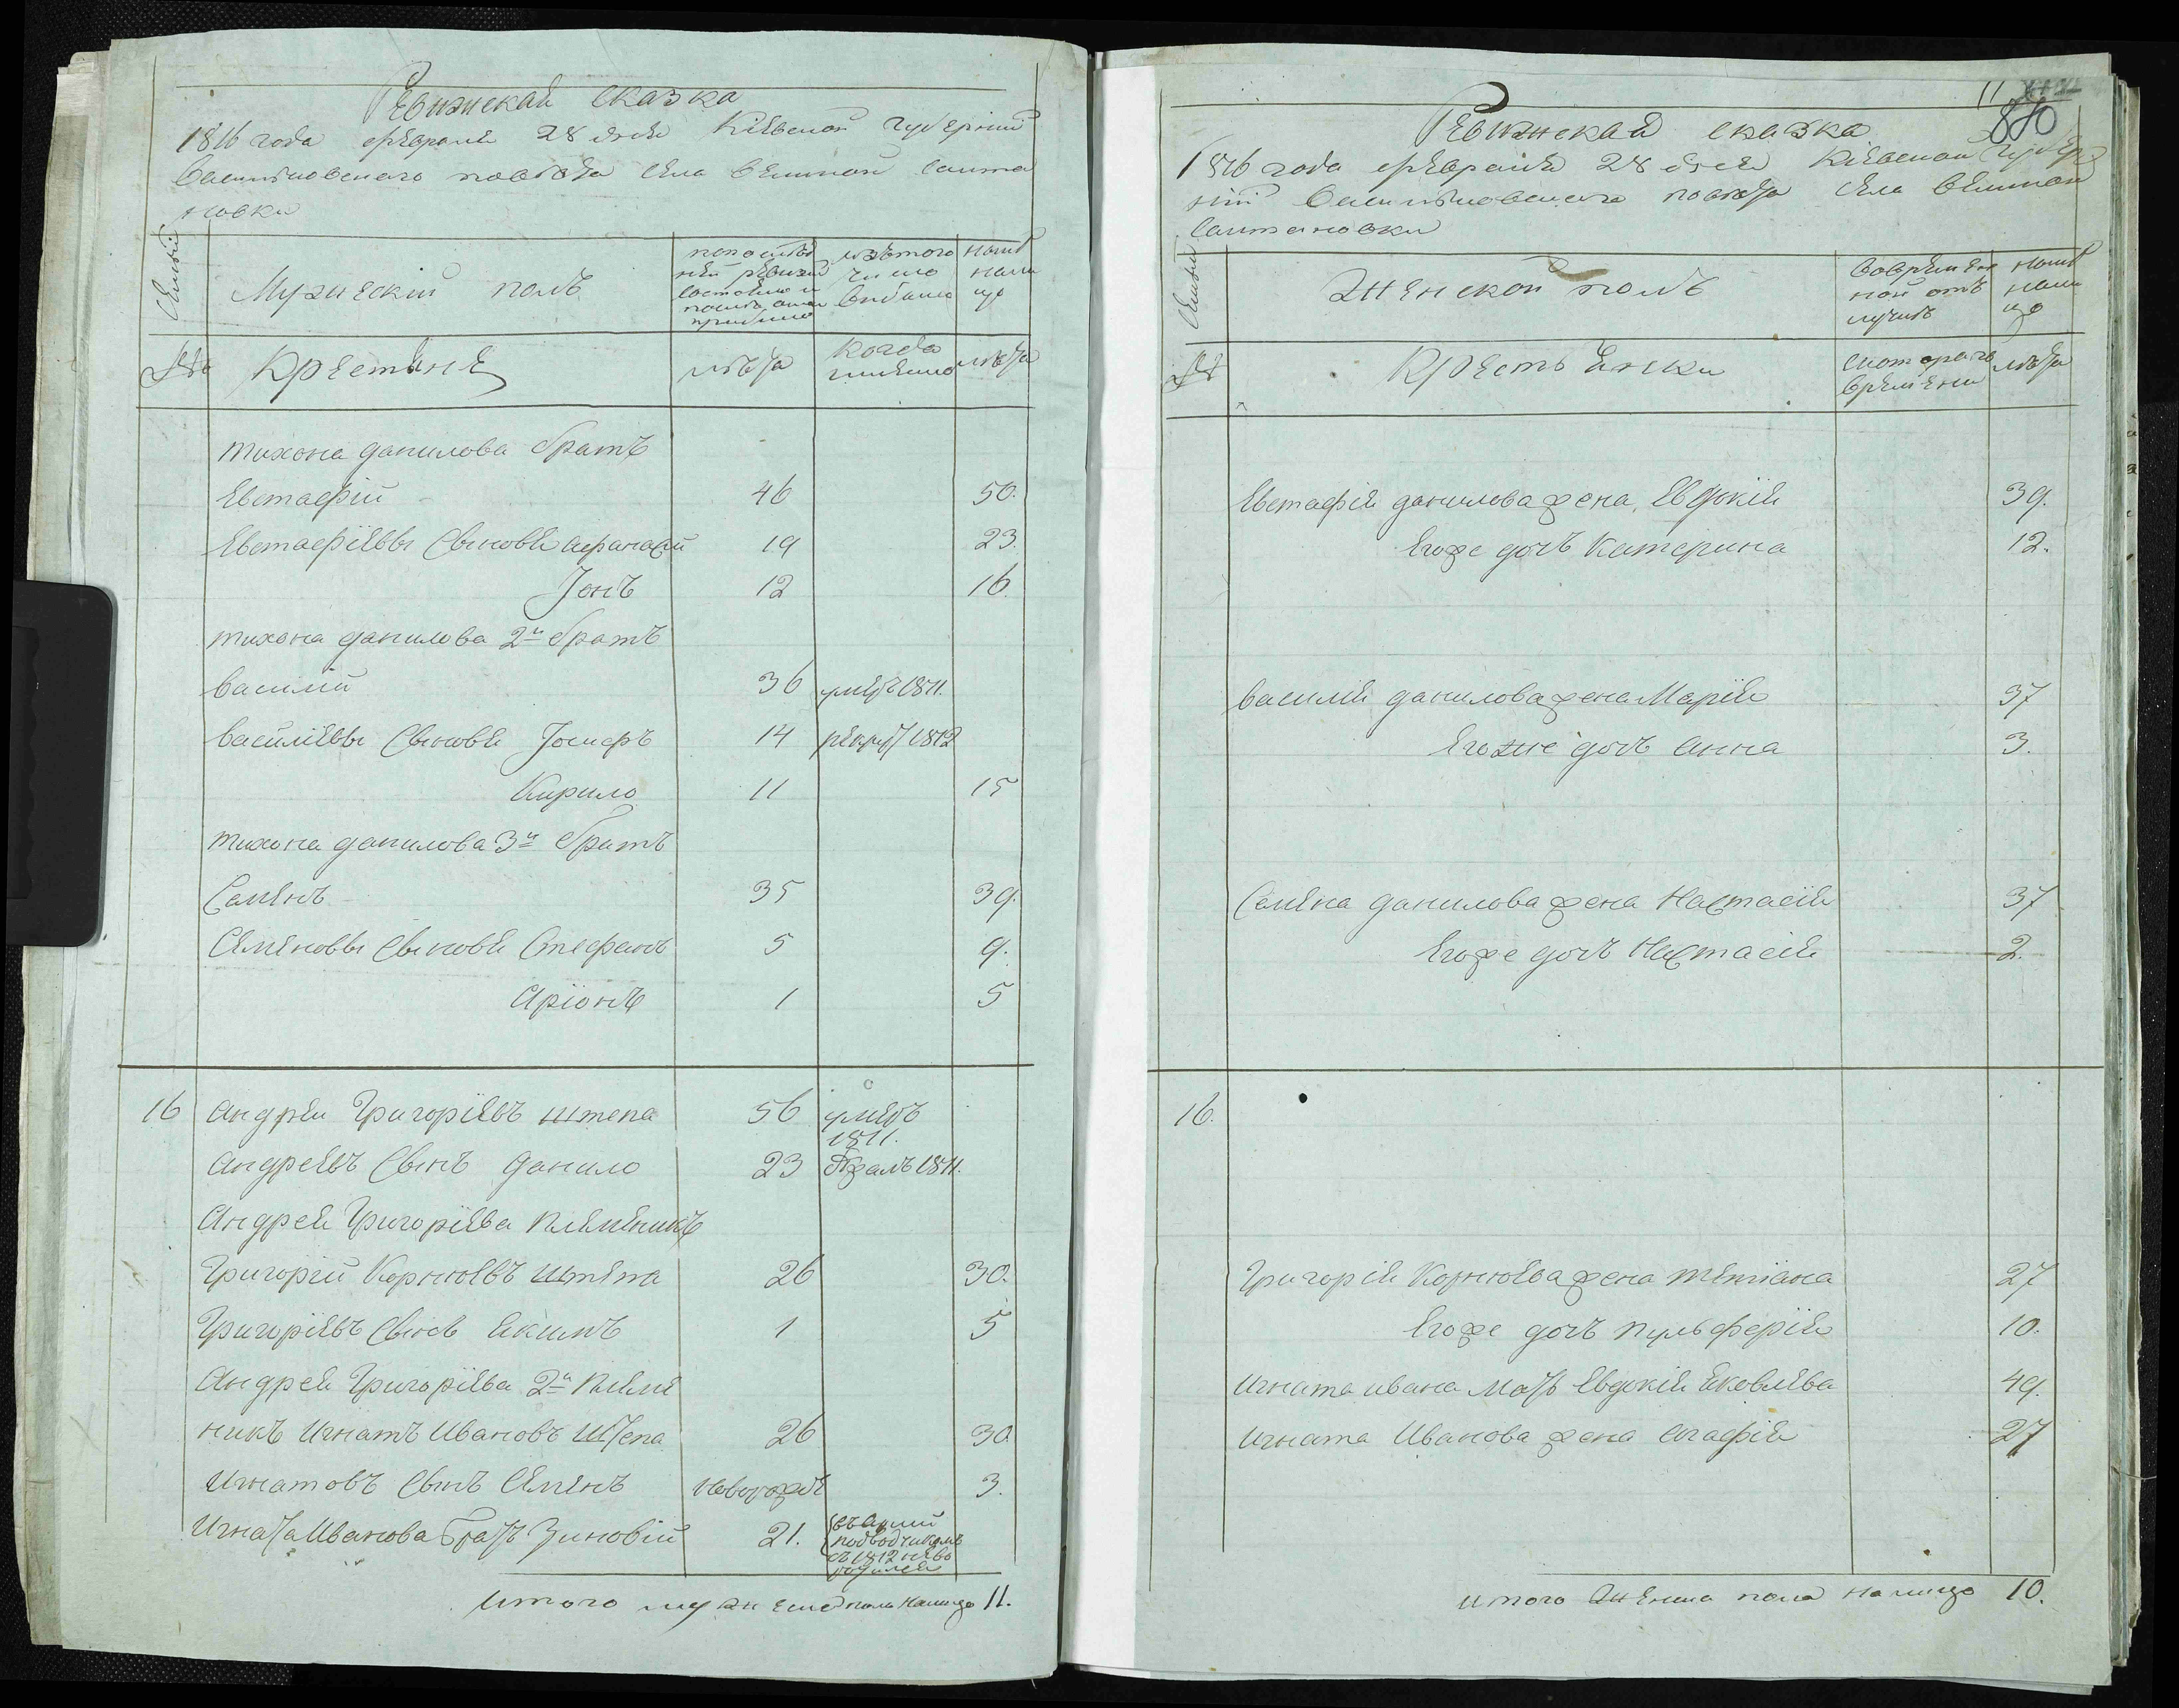 Ревижская сказка
1816 года февраля 28 дня Кіевской Губерніи
Василковского повѣта села великой Салта
новки
Семьи
Мужескій полъ
по последней ревизіи состояло и после оной прибыло
изъ того числа выбыло
ныне на лицо
№
Крестяне
лѣта
когда имянно
лѣта
тихона данилова братъ
Евстафій 46 50.
Евстафіевы Сыновя Афанасій 19 23.
Іонъ 12 16.
тихона данилова 2й братъ
василій 36 умер 1811.
василіевы Сыновя Іосифъ 14 рекрут 1812
Кирило 11 15
тихона данилова 3й братъ
Семенъ 35 39.
Семеновы Сыновя Стефанъ 5 9.
Аріонъ 1 5
16 Андрей Григоріевъ штепа 56 умеръ
1811.
Андреевъ Сынъ данило 23 бжалъ 1811.
Андрея Григоріева племеникъ
Григорій Корнюевъ штепа 26 30.
Григоріевъ Сынъ Якимъ 1 5
Андрея Григоріева 2й племе
никъ Игнатъ Ивановъ Штепа 26 30.
Игнатовъ Сынъ Семенъ Новорожд 3.
Игната Иванова братъ Зиновій 21. въ Арміи
подводчикомъ
съ 1812 и не во
ротился
Итого мужеска пола на лицо 11.
11
810
Ревижская сказка
1816 года февраля 28 дня Кіевской Губер
ніи Василковского повѣта села великой
Салтановки
Семьи
Женской полъ
во временной отлучке
ныне на лицо
№
Крестьянки
с которого времени
лѣта
Евстафія данилова жена Евдокія 39.
Егоже дочъ Катерина 12.
василія данилова жена Марія 37
Егоже дочъ Анна 3.
Семена данилова жена Настасія 37
Егоже дочъ Настасія 2.
16.
Григорія Корнюева жена тетіана 27
Егоже дочъ пульферія 10.
Игната ивана мать Евдокія Яковлева 49.
Игната Иванова жена Агафія 27
Итого женска пола на лицо 10.